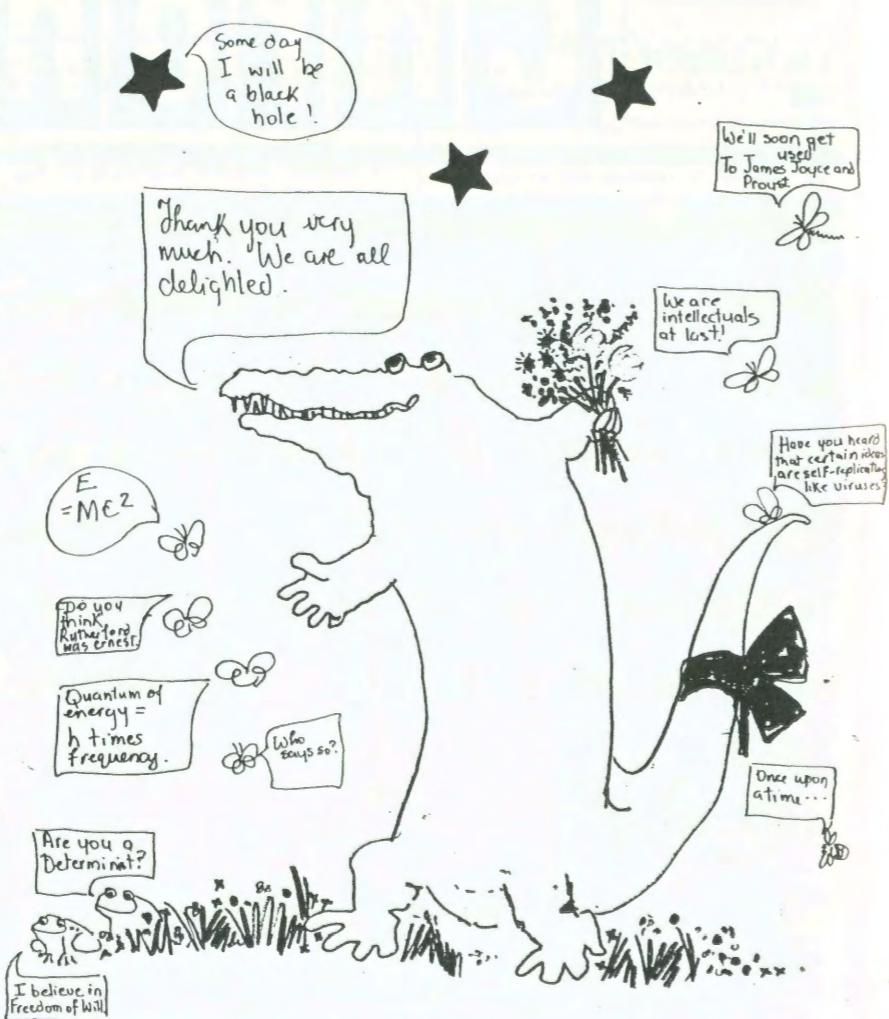 Some day
I will be
a black
hole!
We'll soon get
used
To James Joyce and
Proust
Thank you very
much. We are all
delighted.
We are
intellectuals
at last!
Have you heard
that certain ideas
are self-replicating
like viruses?
E
=MC2
Do you
think
Rutherford
was ernest.
Quantum of
energy =
h times
frequency.
Who
says so?
Once upon
a time...
Are you a
Determinist?
I believe in
Freedom of Will